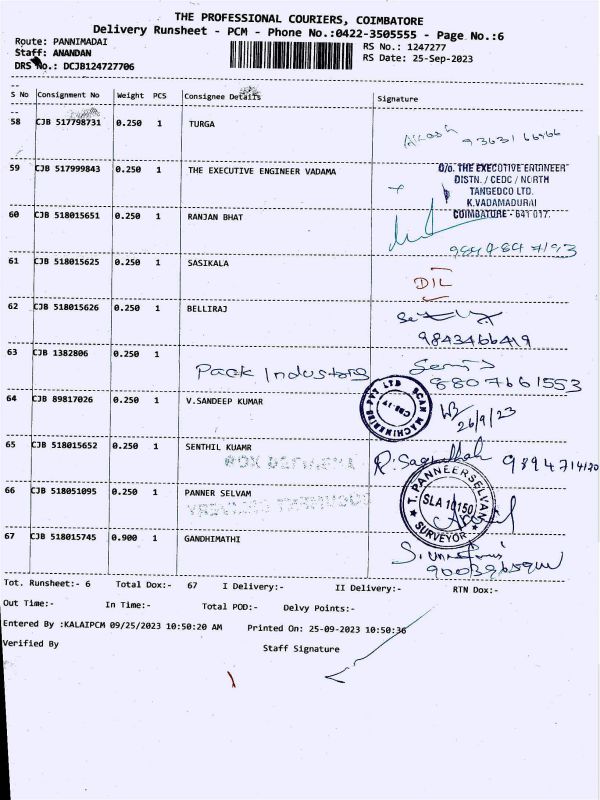 THE PROFESSIONAL COURIERS, COIMBATORE
Delivery Runsheet - PCM - Phone No.:0422-3505555 - Page No.:6
Route: PANNIMADAI
RS No.: 1247277
Staff: ANANDAN
RS Date: 25-Sep-2023
DRS No.: DCJB124727706
S No Consignment No Weight PCS Consignee Details Signature
58 CJB 517798731 0.250 1 TURGA
Akash 9363166966
59 CJB 517999843 0.250 1 THE EXECUTIVE ENGINEER VADAMA
O/o. THE EXECUTIVE ENGINEER
DISTN. / CEDC / NORTH
TANGEDCO LTD.
K.VADAMADURAI
COIMBATORE - 641 017.
60 CJB 518015651 0.250 1 RANJAN BHAT
61 CJB 518015625 0.250 1 SASIKALA
DIL
62 CJB 518015626 0.250 1 BELLIRAJ
9843466419
63 CJB 1382806 0.250 1
Pack Industons
8807661553
64 CJB 89817026 0.250 1 V.SANDEEP KUMAR
SCAN MACHINERIES PVT LTD
CBE-17
26/9/23
65 CJB 518015652 0.250 1 SENTHIL KUAMR
9894714120
66 CJB 518051095 0.250 1 PANNER SELVAM
T. PANNEERSELVAN
SLA 10150
SURVEYOR
67 CJB 518015745 0.900 1 GANDHIMATHI
Tot. Runsheet:- 6 Total Dox:- 67 I Delivery:- II Delivery:- RTN Dox:-
Out Time:- In Time:- Total POD:- Delvy Points:-
Entered By :KALAIPCM 09/25/2023 10:50:20 AM Printed On: 25-09-2023 10:50:36
Verified By Staff Signature